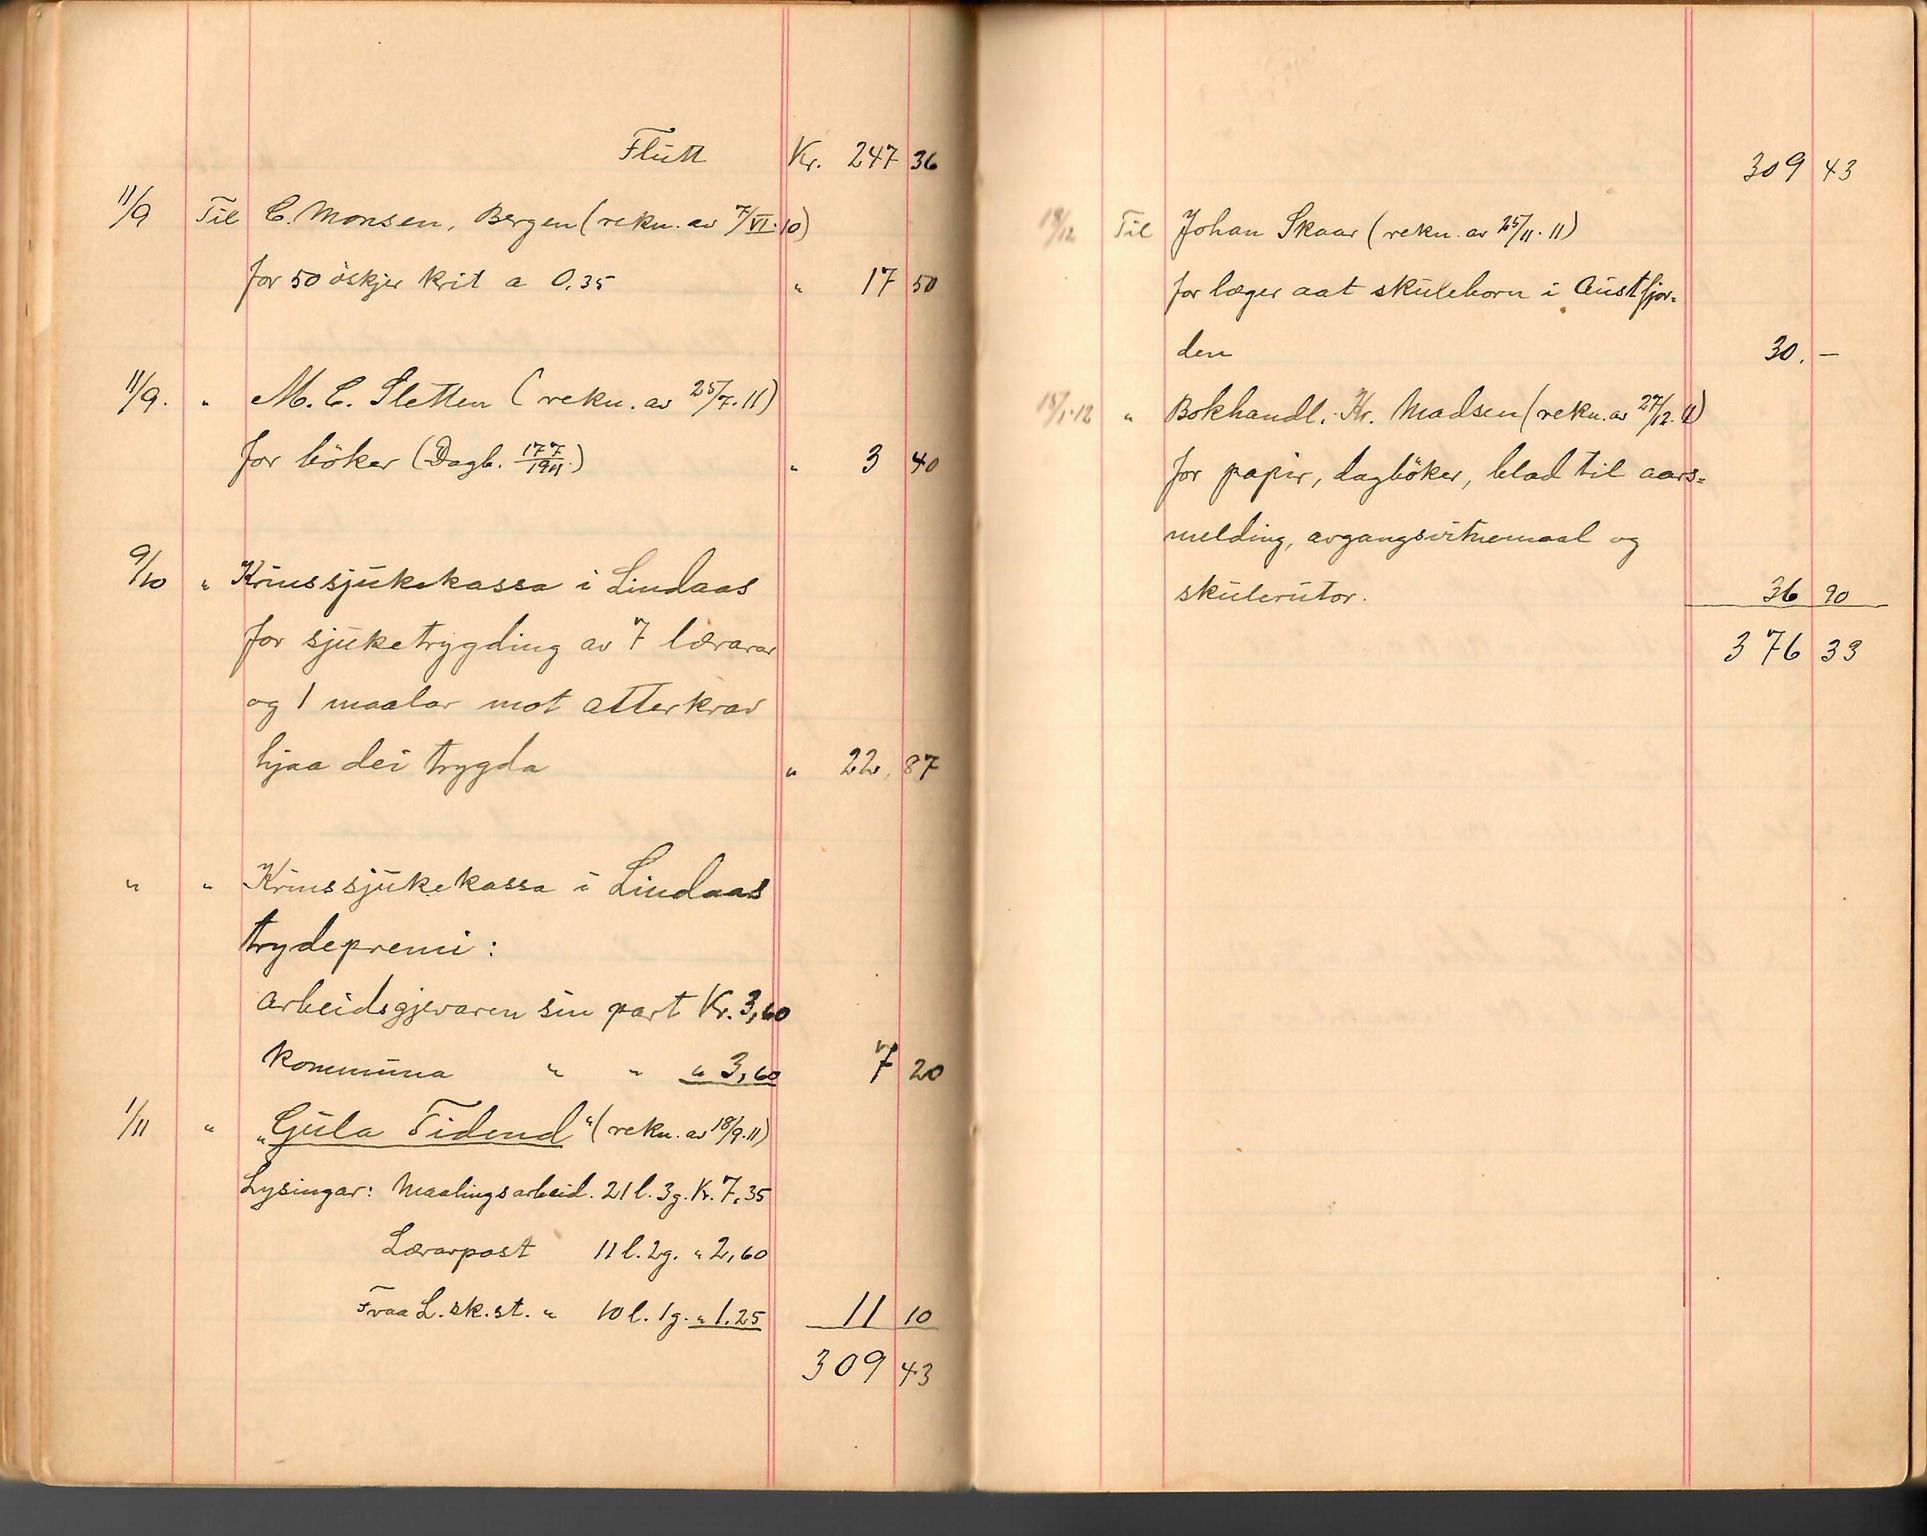 Flutt Kr. 247 36
11/9 Til C. Monsen, Bergen (rekn. av 7/VI. 10)
for 50 öskjer krit a 0,35 " 17 50
11/9. " M. C. Sletten (rekn. av 25/7. 11)
for böker (Dagb. 177/1911.) " 3 40
9/10 " Krinssjukekassa i Lindaas
for sjuketrygding av 7 lærarar
og 1 maalar mot atterkrav
hjaa dei trygda " 22, 87
" " Krinssjukekassa i Lindaas
trydepremi:
arbeidsgjevaren sin part Kr. 3,60
kommuna " " " 3,60 7 20
1/11 " "Gula Tidend" (rekn. av 18/9. 11)
Lysingar: Maalingsarbeid. 21 l. 3 g. Kr. 7,35
Lærarpost 11 l. 2 g. " 2,60
Fraa L. sk. st. " 10 l. 1 g. " 1.25 11 10
309 43
309 43
18/12 Til Johan Skaar (rekn. av 25/11. 11)
for læger aat skuleborn i Austfjor=
den 30. —
15/1. 12 " Bokhandl. Kr. Madsen (rekn. av 27/12. 11)
for papir, dagböker, blad til aars=
melding, avgangsvitnemaal og
skulerutor. 36 90
376 33